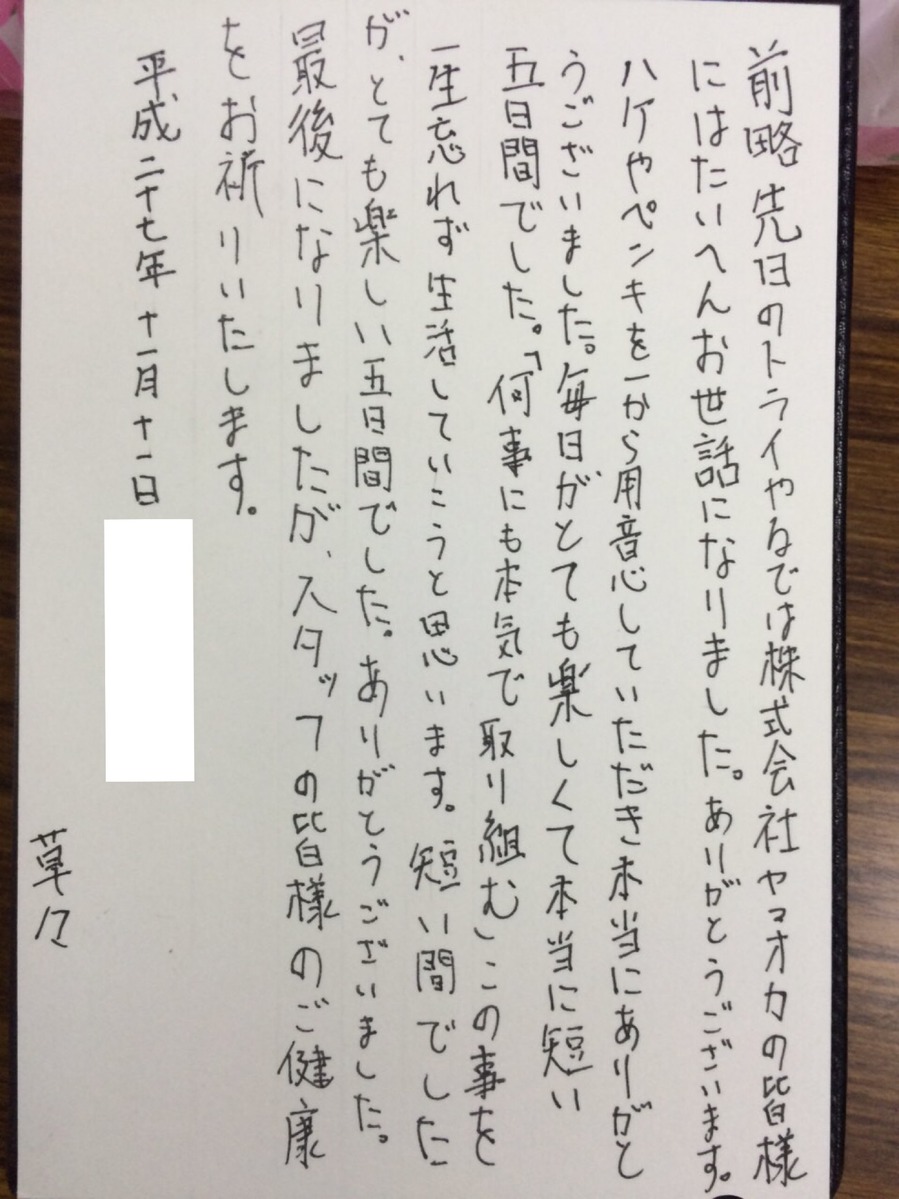 前略先日のトライやるでは株式会社ヤマオカの皆様
にはたいへんお世話になりました。ありがとうございます。
ハケやペンキを一から用意していただき本当にありがと
うございました。毎日がとても楽しくて本当に短い
五日間でした。「何事にも本気で取り組む」この事を
一生忘れず生活していこうと思います。短い間でした
が、とても楽しい五日間でした。ありがとうございました。
最後になりましたが、スタッフの皆様のご健康
をお祈りいたします。
平成二十七年十一月十一日
草々